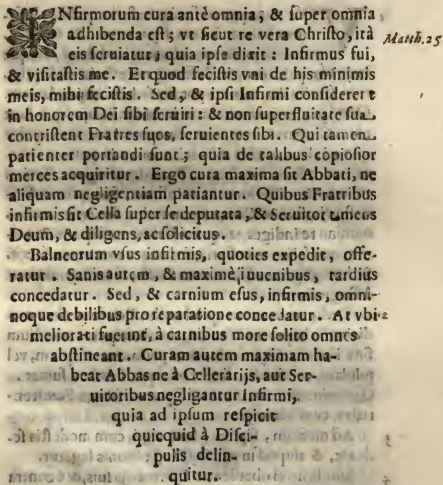 INfirmorum cura antè omnia, & super omnia
adhibenda est; vt sicut re vera Christo, ità
eis seruiatur; quia ipse dixit: Infirmus fui,
Matth.25
& visitastis me. Et quod fecistis vni de his minimis
meis, mihi fecistis. Sed, & ipsi Infirmi considerent
in honorem Dei sibi seruiri: & non superfluitate sua
contristent Fratres suos, seruientes sibi. Qui tamen
patienter portandi sunt; quia de talibus copiosior
merces acquiritur. Ergo cura maxima sit Abbati, ne
aliquam negligentiam patiantur. Quibus Fratribus
infirmis sit Cella super se deputata, & Seruitor timens
Deum, & diligens, ac solicitus.
Balneorum vsus infirmis, quoties expedit, offe-
ratur. Sanis autem, & maximè, iuuenibus, tardiùs
concedatur. Sed, & carnium esus, infirmis, omni-
noque debilibus pro reparatione concedatur. At vbi
meliorati fuerint, à carnibus more solito omnes
abstineant. Curam autem maximam ha-
beat Abbas ne à Cellerarijs, aut Ser-
uitoribus negligantur Infirmi,
quia ad ipsum respicit
quicquid à Disci-
pulis delin-
quitur.